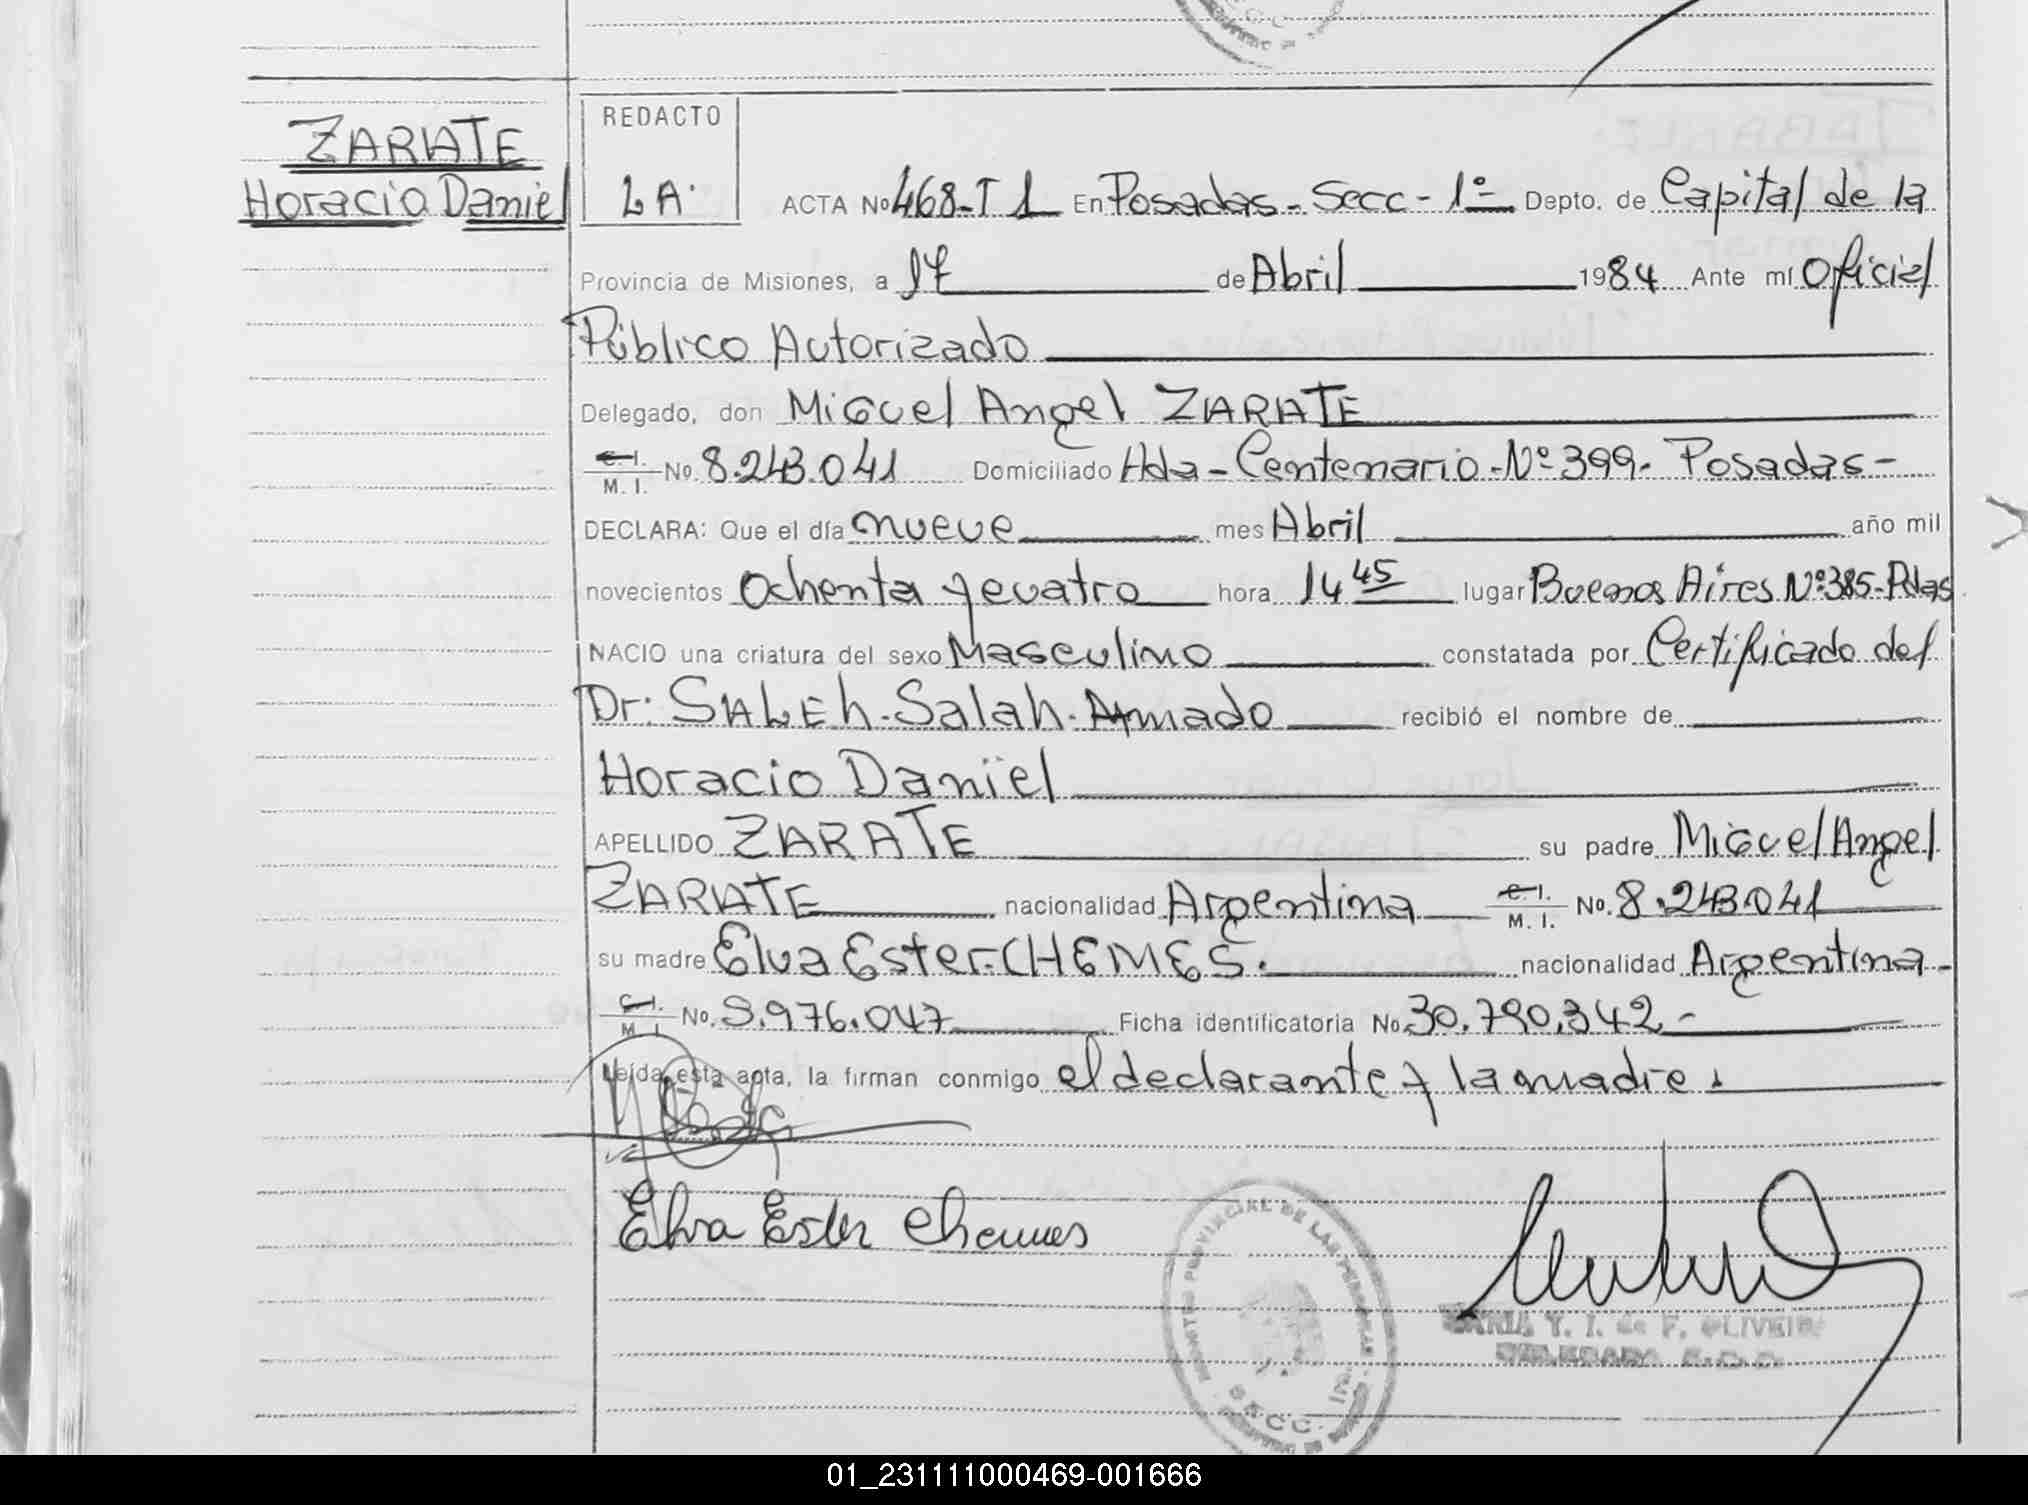 ZARATE
Horacio Daniel
REDACTO
LA.
ACTA Nº 468-T 1 En Posadas - Secc - 1º Depto. de Capital de la
Provincia de Misiones, a 17 de Abril 1984 Ante mí Oficial
Público Autorizado
Delegado, don Miguel Angel ZARATE
C. I.
M. I. No. 8.243.041 Domiciliado Hda - Centenario - Nº 399 - Posadas -
DECLARA: Que el día nueve mes Abril año mil
novecientos Ochenta y cuatro hora 14 45 lugar Buenos Aires Nº 385 - Pdas
NACIO una criatura del sexo Masculino constatada por Certificado del
Dr: SALEh - Salah - Amado recibió el nombre de
Horacio Daniel
APELLIDO ZARATE su padre Miguel Angel
ZARATE nacionalidad Argentina C. I.
M. I. No. 8.243.041
su madre Elva Ester CHEMES. nacionalidad Argentina -
C. I.
M. I. No. 9.976.047 Ficha identificatoria No. 30.790.342 -
Leída esta acta, la firman conmigo el declarante y la madre.
Elva Ester Chemes
PROVINCIAL DE LAS PERSONAS
SECC.
T. I. de F. OLIVEIRA
DELEGADA
01_231111000469-001666